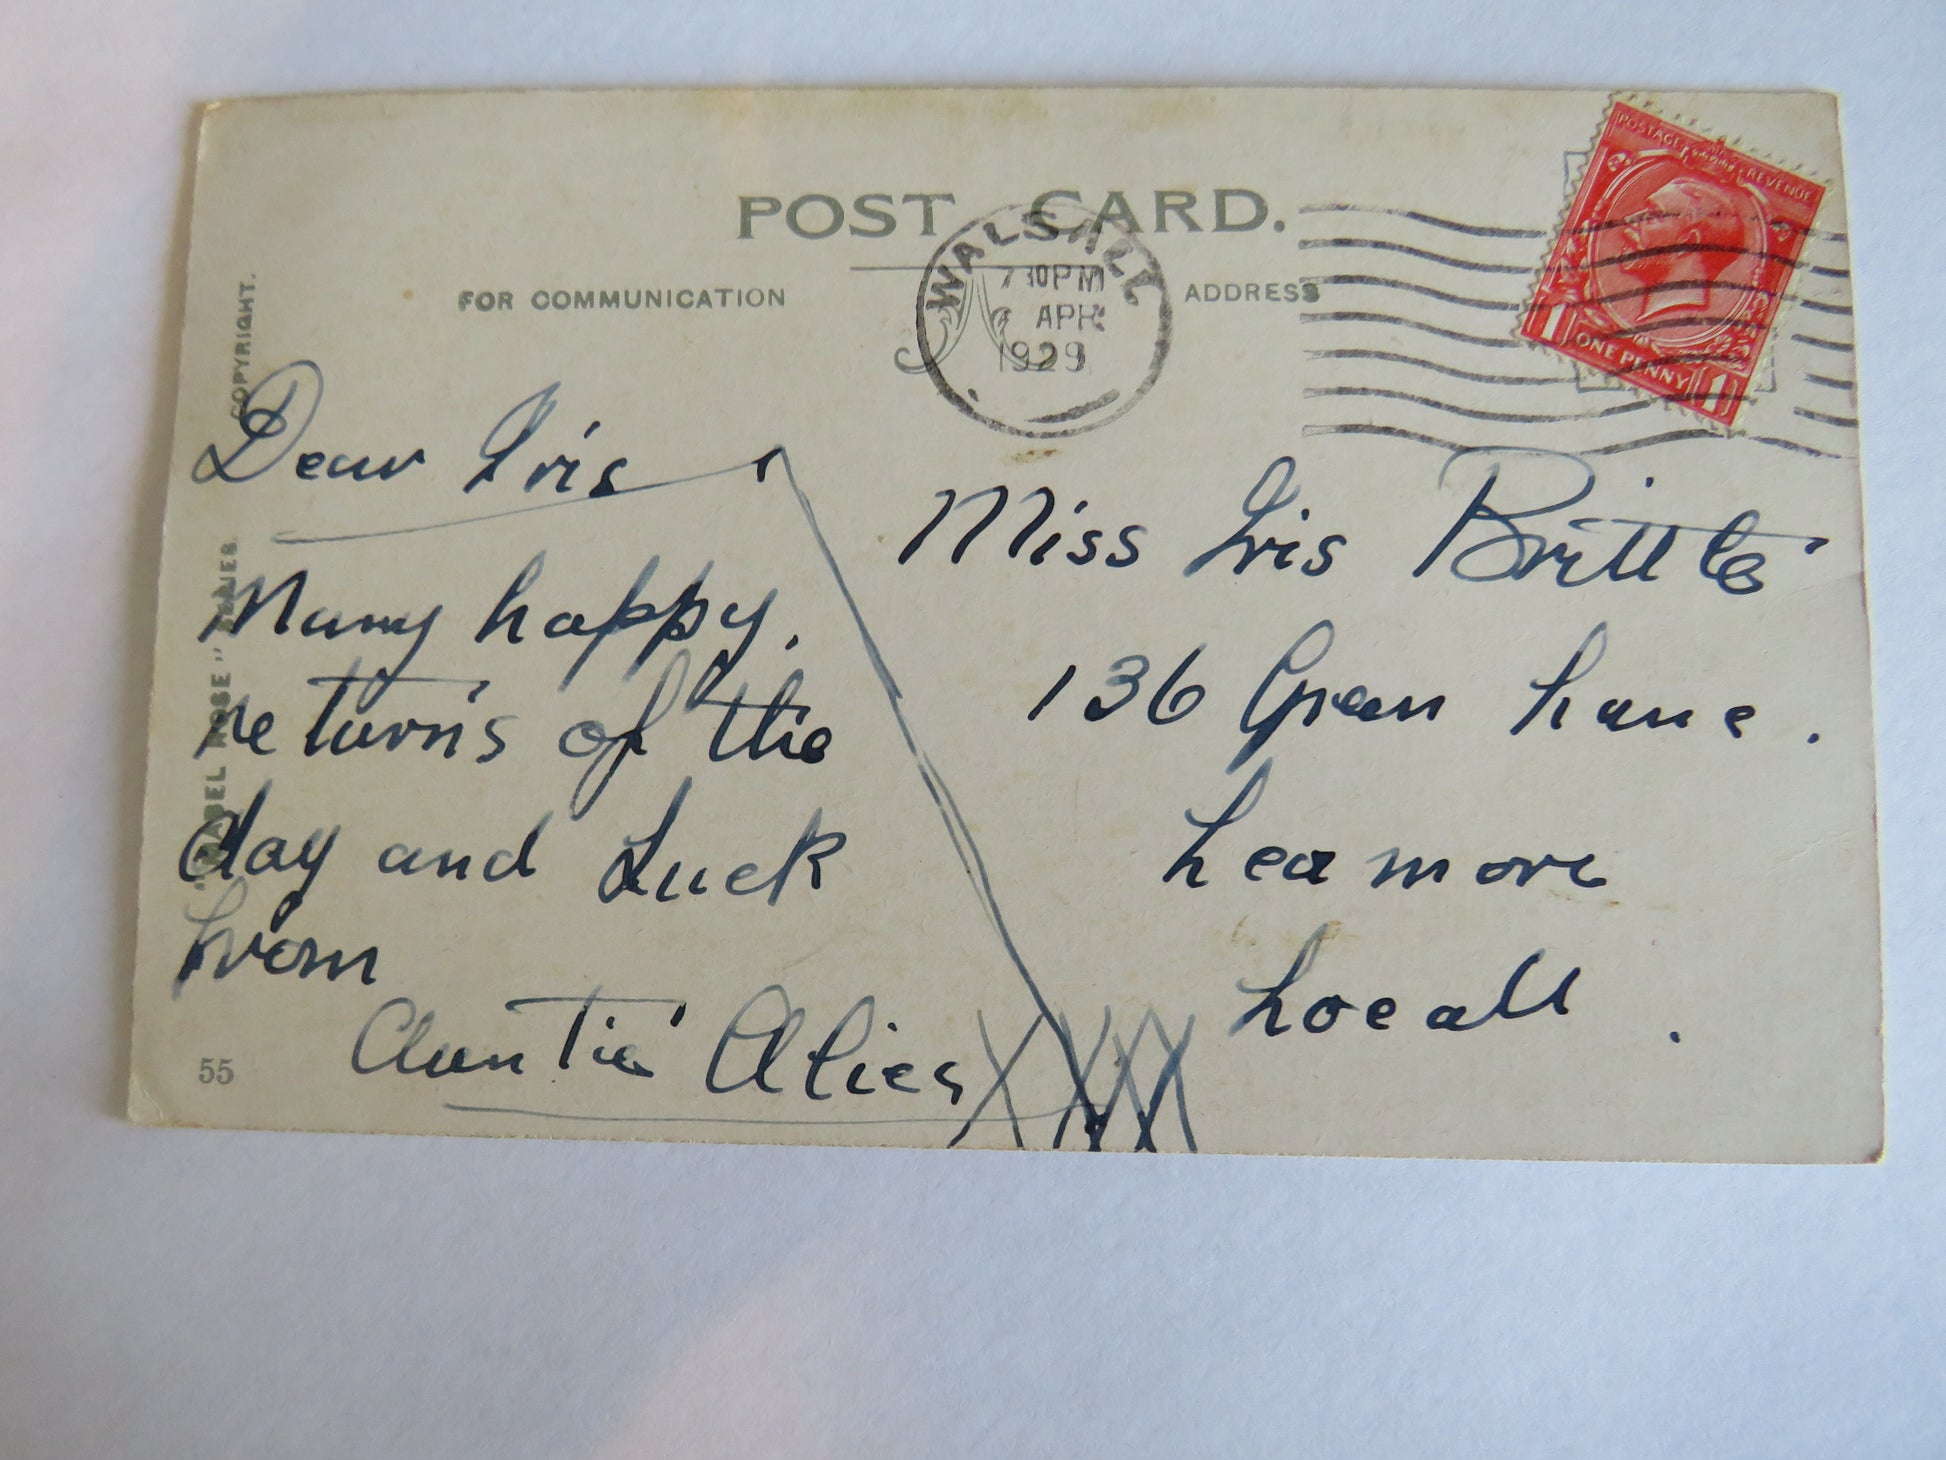 POST CARD.
FOR COMMUNICATION
ADDRESS
WALSALL
7 30 PM
6 APR
1929
POSTAGE REVENUE
1 ONE PENNY 1
COPYRIGHT.
"MABEL ROSE" SERIES.
Dear Iris
Many happy.
returns of the
day and Luck
from
Auntie Alice
XXXX
Miss Iris Brittle
136 Green Lane.
Leamore
Locall.
55